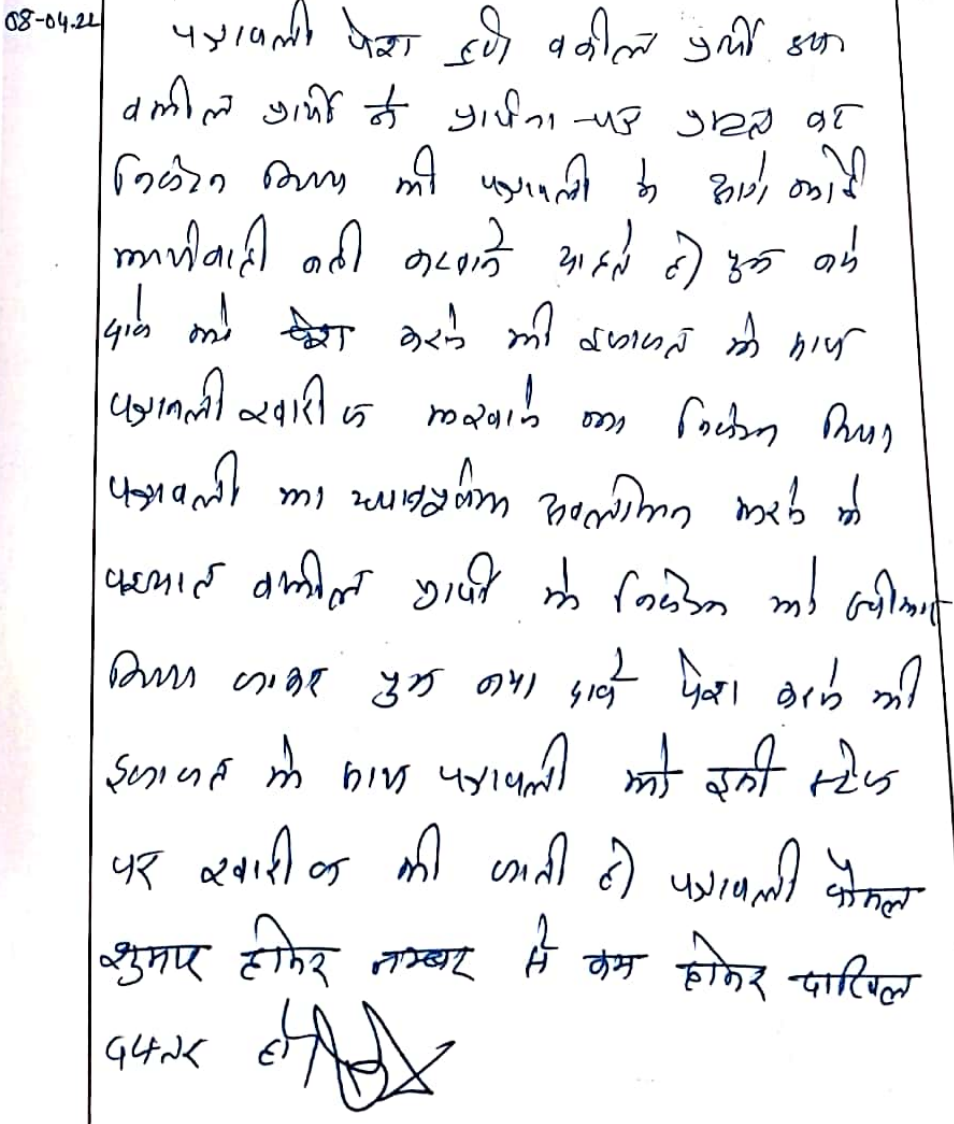 08-04.22
पत्रावली पेश हुयी वकील प्रार्थी उप०
वकील प्रार्थी ने प्रार्थना-पत्र प्रस्तुत कर
निवेदन किया की पत्रावली के आगे कोई
कार्यवाही नही करवाने चाहते है। पुनः नये
दावे को पेश करने की इजाजत के साथ
पत्रावली खारीज करवाने का निवेदन किया
पत्रावली का ध्यानपूर्वक अवलोकन करने के
पश्चात वकील प्रार्थी के निवेदन को स्वीकार
किया जाकर पुनः नया दावे पेश करने की
इजाजत के साथ पत्रावली को इसी स्टेज
पर खारीज की जाती है। पत्रावली फैसल
शुमार होकर नम्बर से कम होकर दाखिल
दफ्तर हो